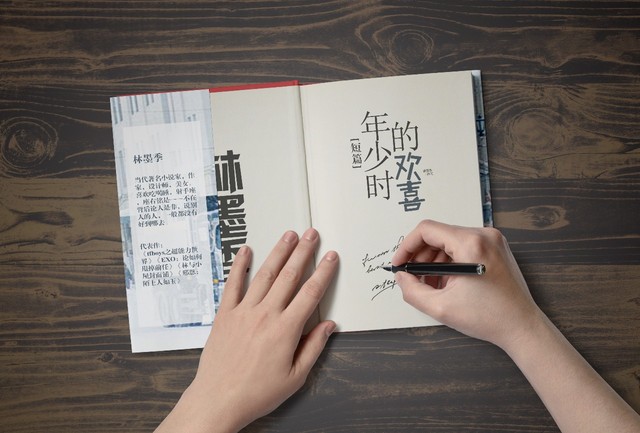 林墨季
当代著名小说家，作
家，设计师，美女。
喜欢吃喝睡，射手座
，座右铭是——不在
背后论人是非，说别
人的人，一般都没有
好到哪去
代表作：
《tfboys之超能力世
界》《EXO：论如何
甩掉前任》《林与小
林墨季
年少时
的欢喜
[短篇]